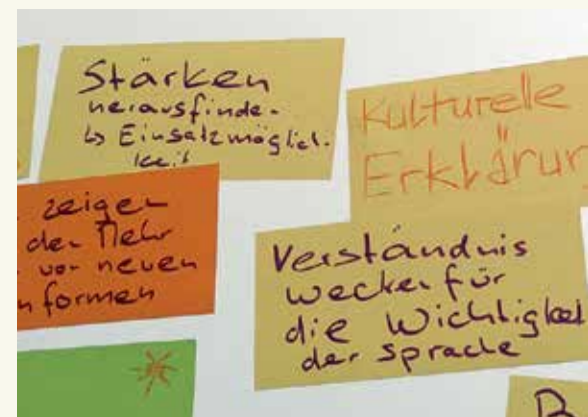 Stärken
herausfinde-
↳ Einsatzmöglich-
keit
Kulturelle
Erklärun
zeigen
den Mehr
von neuen
formen
Verständnis
wecken für
die Wichtigkeit
der Sprache